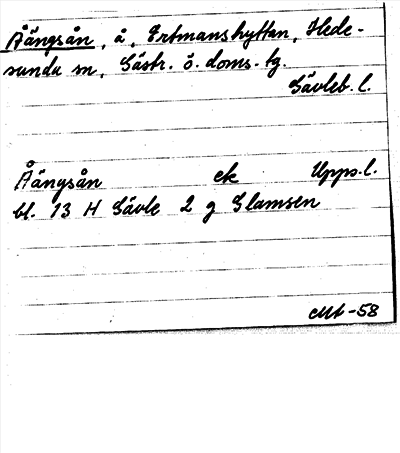 Åängsån, å, Ertmanshyttan, Hede-
sunda sn, Gästr. ö. doms. tg.
Gävleb. l.
Åängsån ek Upps. l.
bl. 13 H Gävle 2 g Glamsen
-58